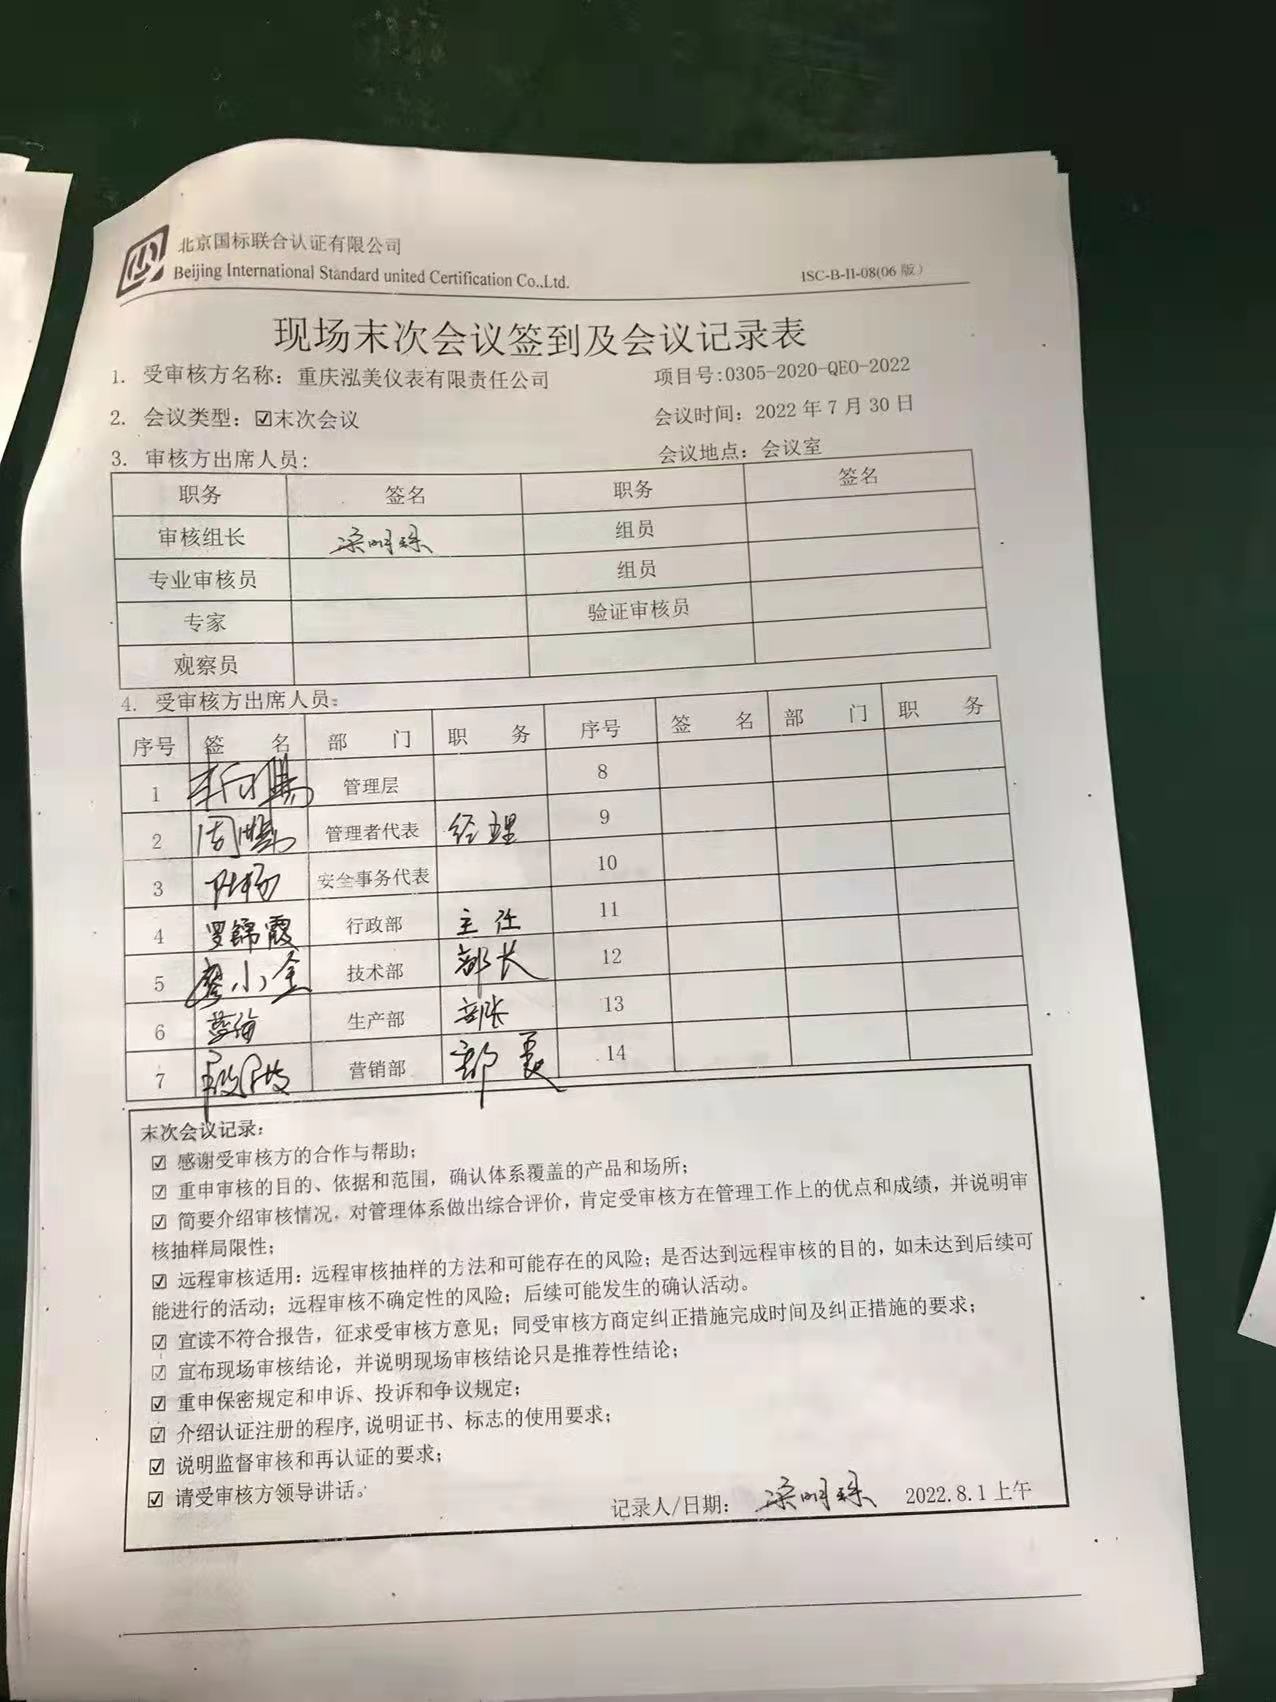 北京国标联合认证有限公司
Beijing International Standard united Certification Co.,Ltd.
ISC-B-II-08(06 版)
现场末次会议签到及会议记录表
1. 受审核方名称：重庆泓美仪表有限责任公司 项目号:0305-2020-QEO-2022
2. 会议类型：☑末次会议 会议时间：2022 年 7 月 30 日
3. 审核方出席人员： 会议地点：会议室
职务 签名 职务 签名
审核组长 梁明珠 组员
专业审核员 组员
专家 验证审核员
观察员
4. 受审核方出席人员：
序号 签 名 部 门 职 务 序号 签 名 部 门 职 务
1 管理层 8
2 管理者代表 经理 9
3 安全事务代表 10
4 罗锦霞 行政部 主任 11
5 廖小全 技术部 部长 12
6 生产部 部长 13
7 营销部 部长 14
末次会议记录：
☑ 感谢受审核方的合作与帮助；
☑ 重申审核的目的、依据和范围，确认体系覆盖的产品和场所；
☑ 简要介绍审核情况，对管理体系做出综合评价，肯定受审核方在管理工作上的优点和成绩，并说明审
核抽样局限性；
☑ 远程审核适用：远程审核抽样的方法和可能存在的风险；是否达到远程审核的目的，如未达到后续可
能进行的活动；远程审核不确定性的风险；后续可能发生的确认活动。
☑ 宣读不符合报告，征求受审核方意见；同受审核方商定纠正措施完成时间及纠正措施的要求；
☑ 宣布现场审核结论，并说明现场审核结论只是推荐性结论；
☑ 重申保密规定和申诉、投诉和争议规定；
☑ 介绍认证注册的程序,说明证书、标志的使用要求；
☑ 说明监督审核和再认证的要求；
☑ 请受审核方领导讲话。
记录人/日期： 梁明珠 2022.8.1 上午